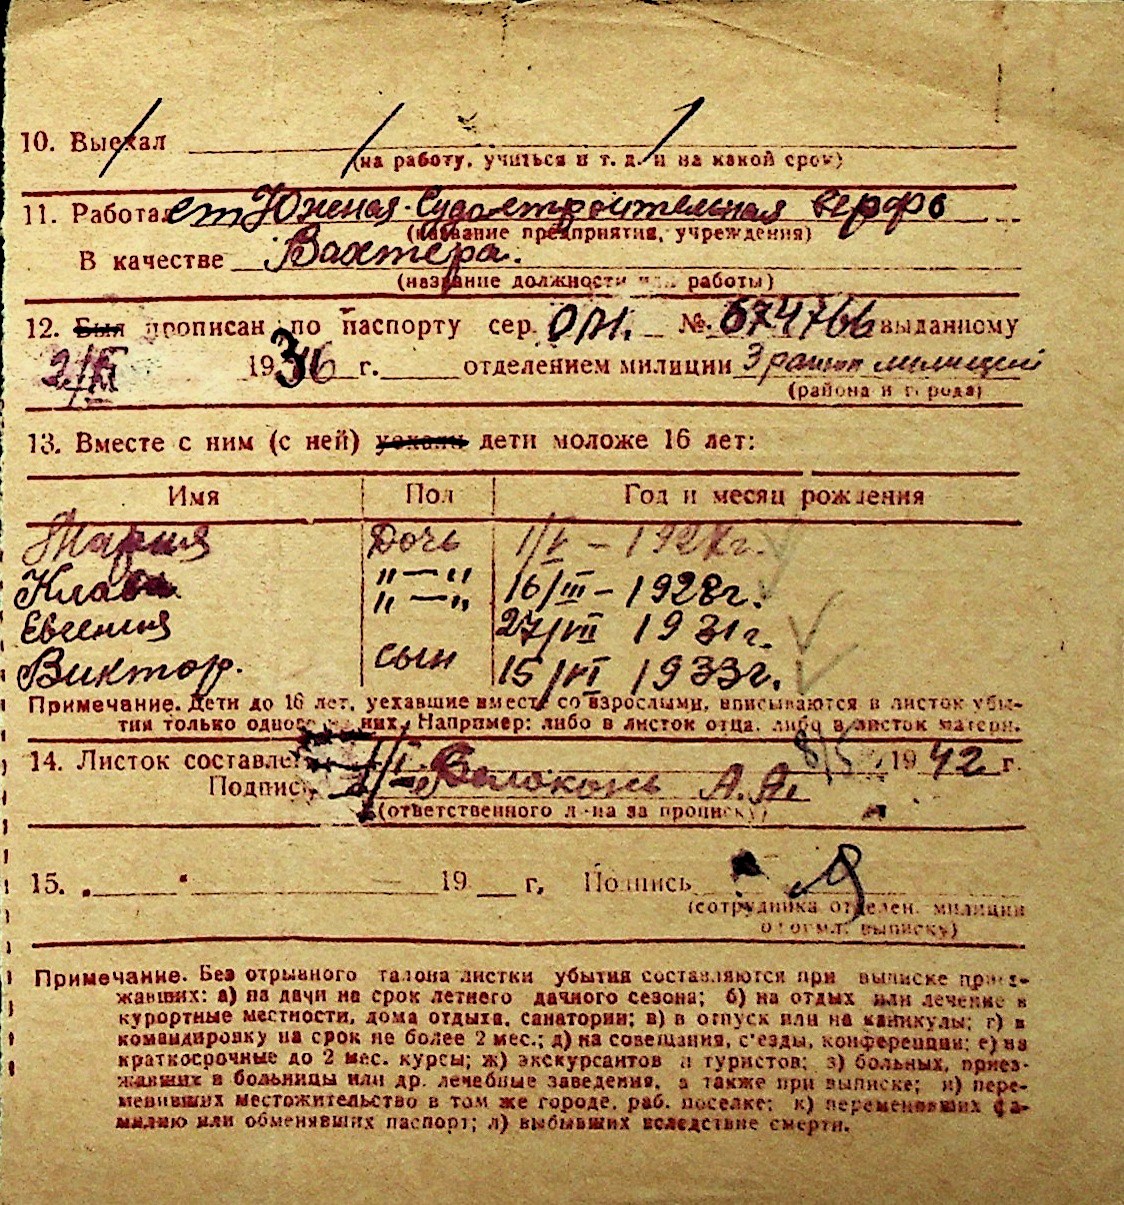 10. Выехал
(на работу, учиться и т. д. и на какой срок)
11. Работает Южная Судостроительная верфь
(название предприятия, учреждения)
В качестве Вахтера.
(название должности или работы)
12. Был прописан по паспорту сер. № 674766 выданному
2/XI 1936 г. отделением милиции 3 район милиции
(района и города)
13. Вместе с ним (с ней) уехали дети моложе 16 лет:
Имя Пол Год и месяц рождения
Мария Дочь 1/V – 1927г.
Клава "—" 16/III – 1928г.
Евгения "—" 27/VII 1931г.
Виктор. сын 15/VI 1933г.
Примечание. Дети до 16 лет, уехавшие вместе со взрослыми, вписываются в листок убы-
тия только одного из них. Например: либо в листок отца, либо в листок матери.
14. Листок составлен 8/5 1942 г.
Подпись Белоконь А.А.
(ответственного л-ца за прописку)
15. 19 г. Подпись
(сотрудника отделен. милиции
оформл. выписку)
Примечание. Без отрывного талона листки убытия составляются при выписке приез-
жавших: а) на дачи на срок летнего дачного сезона; б) на отдых или лечение в
курортные местности, дома отдыха, санатории; в) в отпуск или на каникулы; г) в
командировку на срок не более 2 мес.; д) на совещания, с'езды, конференции; е) на
краткосрочные до 2 мес. курсы; ж) экскурсантов и туристов; з) больных, приез-
жавших в больницы или др. лечебные заведения, а также при выписке; и) пере-
менивших местожительство в том же городе, раб. поселке; к) переменивших фа-
милию или обменявших паспорт; л) выбывших вследствие смерти.